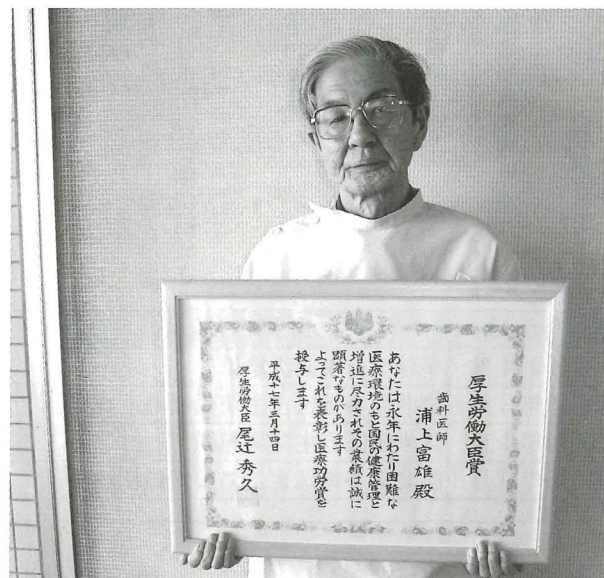 厚生労働大臣賞
歯科医師
浦上富雄 殿
あなたは永年にわたり困難な
医療環境のもと国民の健康管理と
増進に尽力されその業績は誠に
顕著なものがあります
よってこれを表彰し医療功労賞を
授与します
平成十七年三月十四日
厚生労働大臣 尾辻秀久